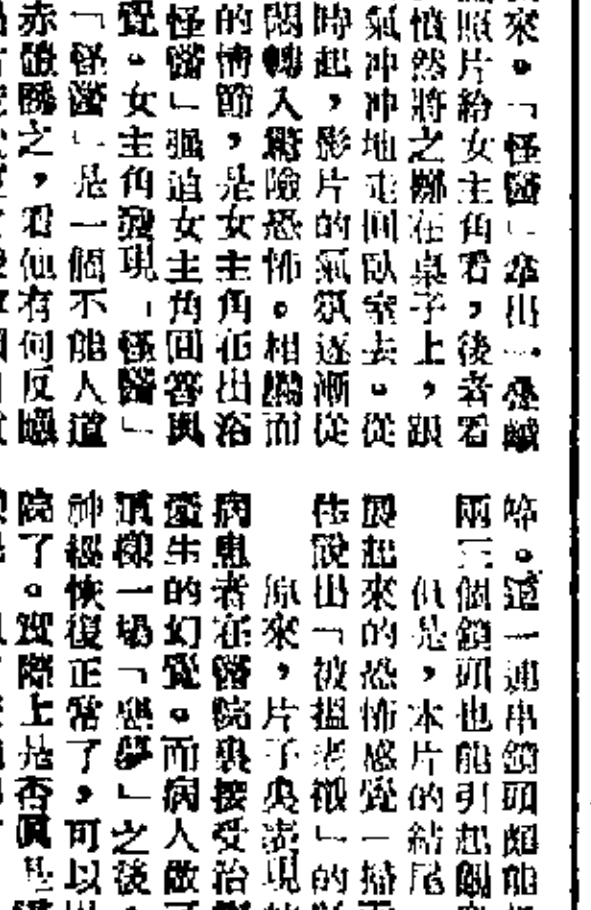 來。「怪醫」拿出一疊鹹
照片給女主角看，後者看
憤然將之擲在桌子上，跟
氣冲冲地走回臥室去。從
時起，影片的氣氛逐漸從
悶轉入驚險恐怖。相繼而
的情節，是女主角在出浴
怪醫」强迫女主角回答與
覺。女主角發現「怪醫」
「怪醫」是一個不能人道
赤體誘之，看他有何反應
啼。這一連串鏡頭頗能
兩三個鏡頭也能引起觀
但是，本片的結尾
展起來的恐怖感覺一掃
說出「被搵老襯」的
原來，片子與表現
病患者在醫院裏接受治
產生的幻覺。而病人做
這樣一場「惡夢」之後
神經恢復正常了，可以
院了。實際上是否眞是